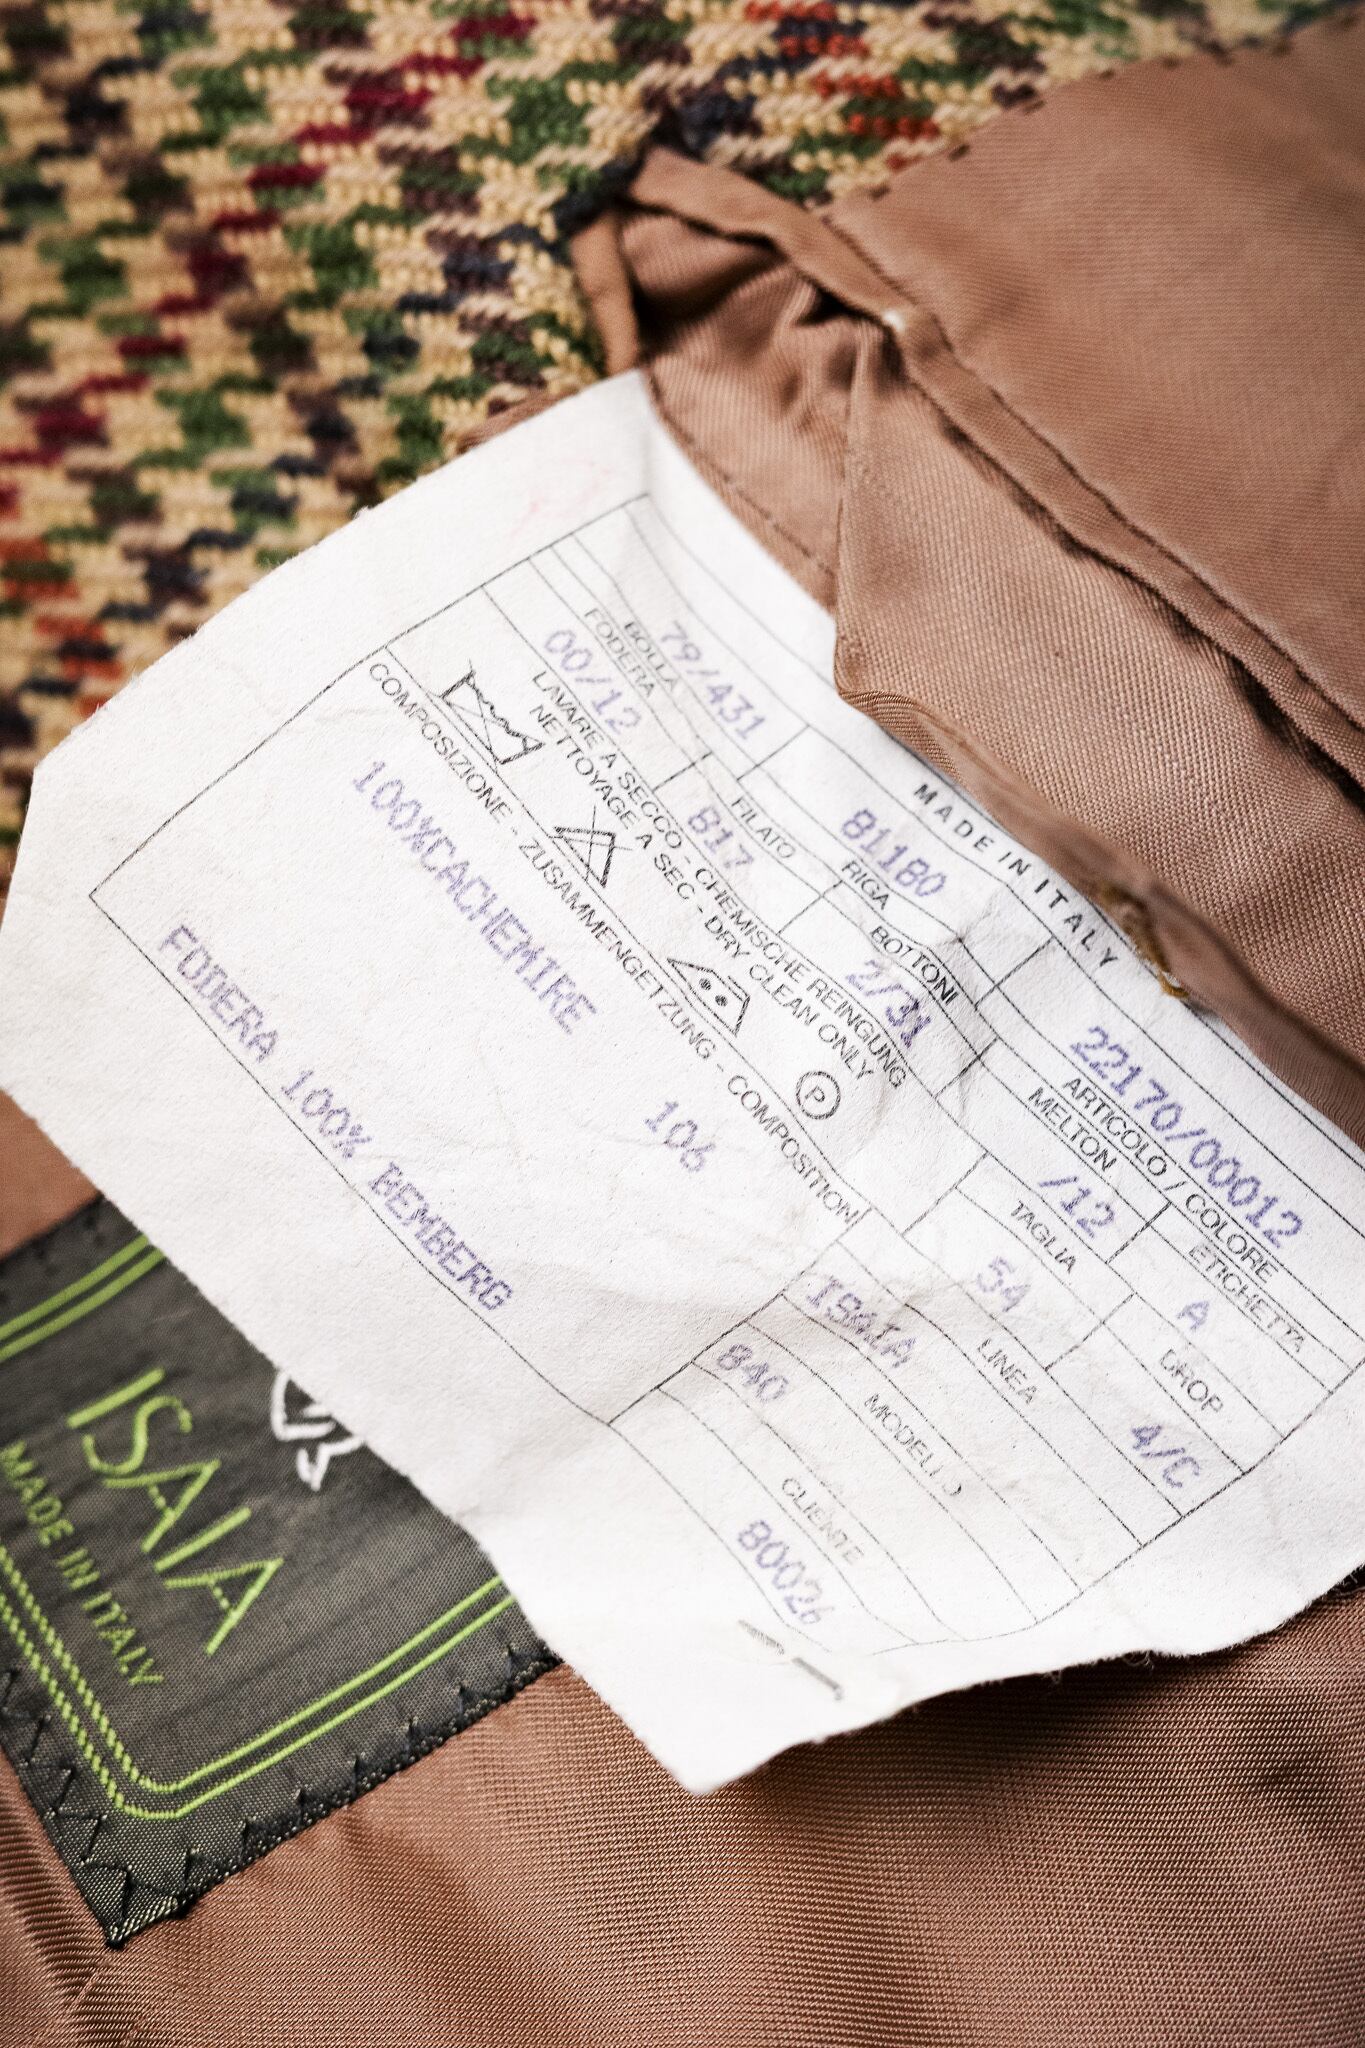 MADE IN ITALY
22170/00012
ARTICOLO / COLORE
81180
RIGA
79/431
BOLLA
ETICHETTA
A
MELTON
/12
BOTTONI
2/31
FILATO
817
FODERA
00/12
DROP
4/C
TAGLIA
54
LINEA
ISAIA
MODELLO
840
CLIENTE
80026
LAVARE A SECCO - CHEMISCHE REINGUNG
NETTOYAGE A SEC - DRY CLEAN ONLY
P
COMPOSIZIONE - ZUSAMMENGETZUNG - COMPOSITION
100%CACHEMIRE
106
FODERA 100% BEMBERG
ISAIA
MADE IN ITALY